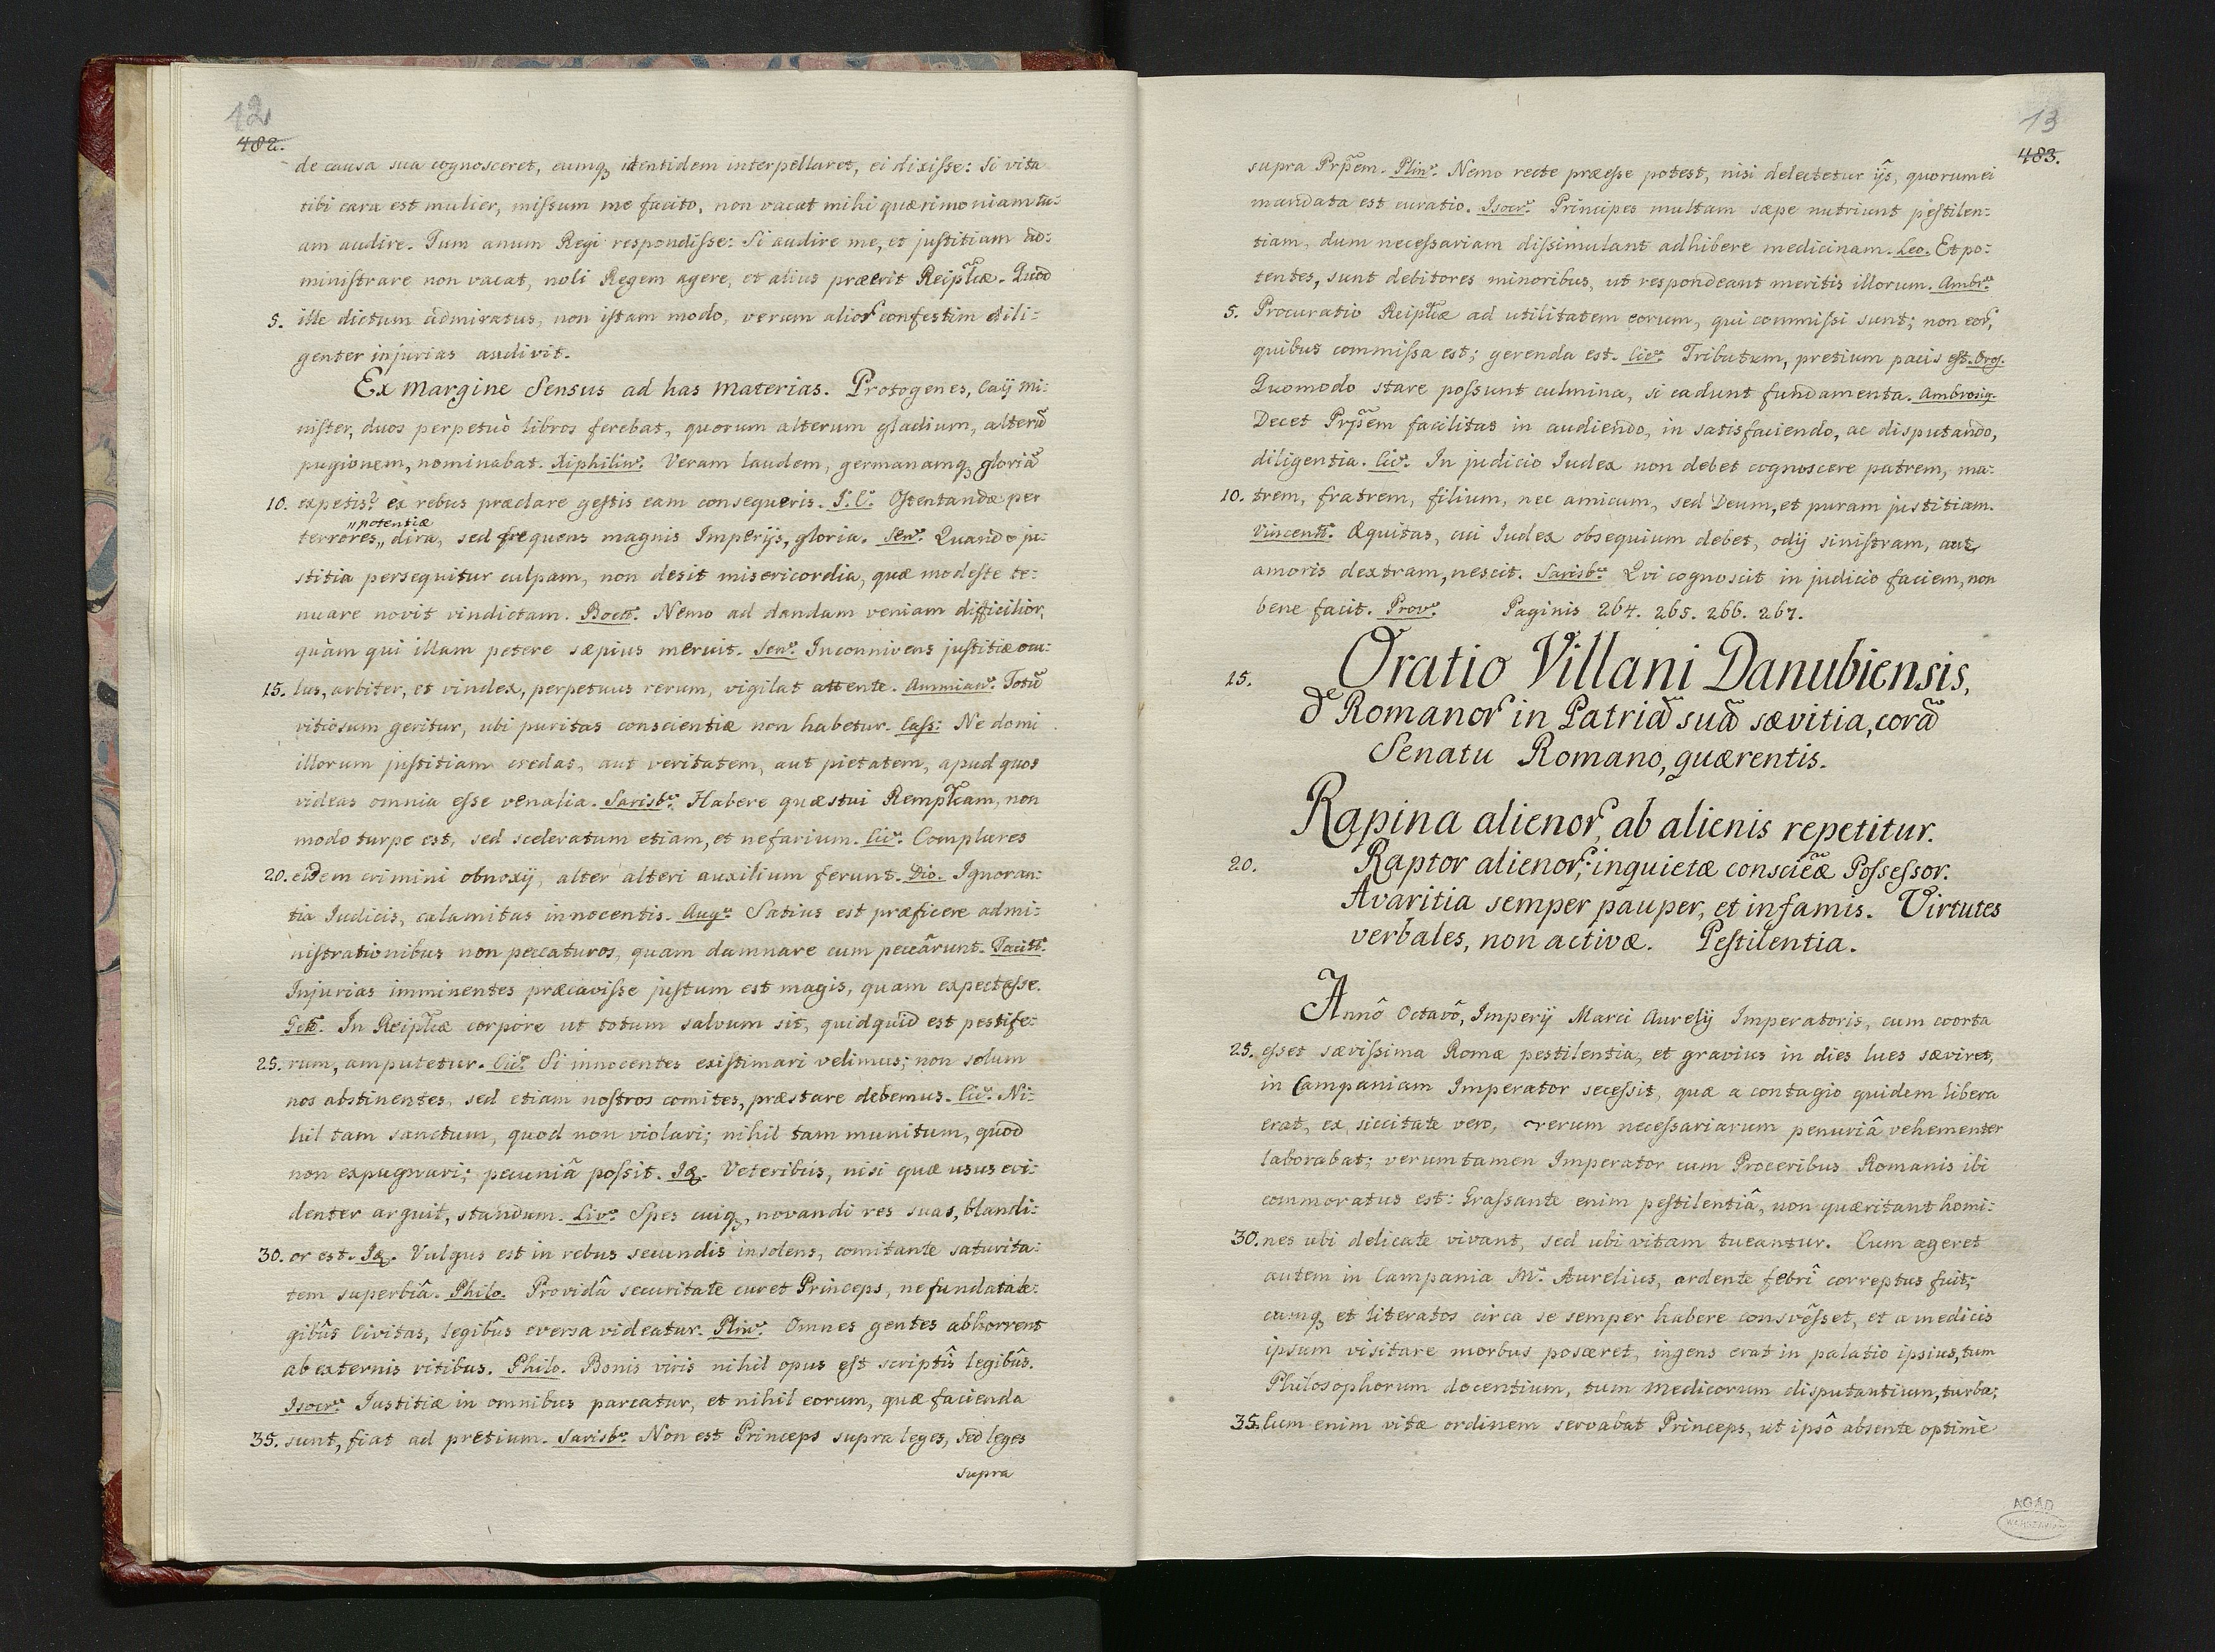 12
482.
de causa sua cognosceret, eumq3 identidem interpellaret, ei dixiſse: Si vita
tibi cara est mulier, miſsum me facito, non vacat mihi quærimoniam tu:
am audire. Tum anum Regi respondiſse: Si audire me, et juſtitiam ad:
miniſtrare non vacat, noli Regem agere, et alius præerit Reipl̃cæ. Quod
5. ille dictum admiratus, non iſtam modo, verum alior̃ confestim dili:
genter injurias audivit.
Ex Margine Sensus ad has Materias. Protogenes, Caij Mi:
niſter, duos perpetuò libros ferebat, quorum alterum gladium, alterũ
pugionem, nominabat. Xiphilin9. Veram laudem, germanamq3 gloriã
10. expetis? ex rebus præclare geſtis eam consequeris. J. C. Oſtentandæ per
„potentiæ
terrores„ dira, sed frequens magnis Imperijs, gloria. Sen. Quando ju:
ſtitia persequitur culpam, non desit misericordia, quæ modeſte te:
nuare novit vindictam. Boeti9. Nemo ad dandam veniam difficilior,
quàm qui illam petere sæpius meruit. Sen. Inconnivens juſtitiæ ocu:
15. lus, arbiter, et vindex, perpetuus rerum, vigilat attente. Ammian9. Totũ
vitiosum geritur, ubi puritas conscientiæ non habetur. Caſs: Ne domi
illorum juſtitiam credas, aut veritatem, aut pietatem, apud quos
videas omnia eſse venalia. Sarisb. Habere quæstui Rempl̃cam, non
modo turpe est, sed sceleratum etiam, et nefarium. Cic. Complures
20. eidem crimini obnoxij, alter alteri auxilium ferunt. Dio. Ignoran:
tia Iudicis, calamitas innocentis. Aug. Satius est præficere admi:
niſtrationibus non peccaturos, quam damnare cum peccârunt. Tacit9.
Injurias imminentes præcaviſse juſtum est magis, quam expectaſse.
In Reipl̃cæ corpore ut totum salvum sit, quidquid est pestife:
25. rum, amputetur. Cic. Si innocentes exiſtimari velimus; non solum
nos abstinentes, sed etiam noſtros comites, præstare debemus. Cic. Ni:
hil tam sanctum, quod non violari; nihil tam munitum, quod
non expugnari; pecuniâ poſsit. Iq. Veteribus, nisi quæ usus evi:
denter arguit, standum. Liv. Spes cuiq3, novandi res suas, blandi:
30. or est. Iq. Vulgus est in rebus secundis insolens, comitante saturita:
tem superbiâ. Philo. Providâ securitate curet Princeps, ne fundata le:
gibûs Civitas, legibûs eversa videatur. Plin. Omnes gentes abhorrent
ab externis vitibus. Philo. Bonis viris nihil opus eſt scriptîs legibûs.
Isocr. Iustitiæ in omnibus parcatur, et nihil eorum, quæ facienda
35. sunt, fiat ad pretium. Sarisb. Non est Princeps supra leges, sed leges
supra
13
483.
supra Prp̃em. Plin. Nemo recte præeſse potest, nisi delectetur ijs, quorum ei
mandata est curatio. Isocr. Principes multam sæpe nutriunt peſtilen:
tiam, dum neceſsariam diſsimulant adhibere medicinam. Leo. Et po:
tentes, sunt debitores minoribus, ut respondeant meritis illorum. Ambr.
5. Procuratio Reipl̃cæ ad utilitatem eorum, qui commiſsi sunt; non eor̃,
quibus commiſsa est; gerenda est. Cic. Tributum, pretium pacis eſt. Oros.
Quomodo stare poſsunt culmina, si cadunt fundamenta. Ambrosi9.
Decet Prp̃em facilitas in audiendo, in satisfaciendo, ac disputando,
diligentia. Cic. In judicio Iudex non debet cognoscere patrem, ma:
10. trem, fratrem, filium, nec amicum, sed Deum, et puram juſtitiam.
Vincenti9. Æquitas, cui Iudex obsequium debet, odij siniſtram, aut
amoris dextram, nescit. Sarisb. Qvi cognoscit in judicio faciem, non
bene facit. Prov. Paginis 264. 265. 266. 267.
15. Oratio Villani Danubiensis,
d̃ Romanor̃ in Patriã suã sævitia, corã
Senatu Romano, quærentis.
Rapina alienor̃, ab alienis repetitur.
20. Raptor alienor̃; inquietæ consciẽæ Poſseſsor.
Avaritia semper pauper, et infamis. Virtutes
verbales, non activæ. Peſtilentia.
Annô Octavô, Imperij Marci Aurelij Imperatoris, cum coorta
25. eſset sæviſsima Romæ pestilentia, et gravius in dies lues sæviret,
in Campaniam Imperator seceſsit, quæ a contagio quidem libera
erat, ex siccitate vero, rerum neceſsariarum penuriâ vehementer
laborabat; verumtamen Imperator cum Proceribus Romanis ibi
commoratus est: Graſsante enim peſtilentiâ, non quæritant homi:
30. nes ubi delicate vivant, sed ubi vitam tueantur. Cum ageret
autem in Campania M. Aurelius, ardente febrî correptus fuit;
cumq3 et literatos circa se semper habere consvêſset, et a medicis
ipsum visitare morbus posceret, ingens erat in palatio ipsius, tum
Philosophorum docentium, tum Medicorum disputantium, turba;
35. Eum enim vitæ ordinem servabat Princeps, ut ipsô absente optime
AGAD
WARSZAWA